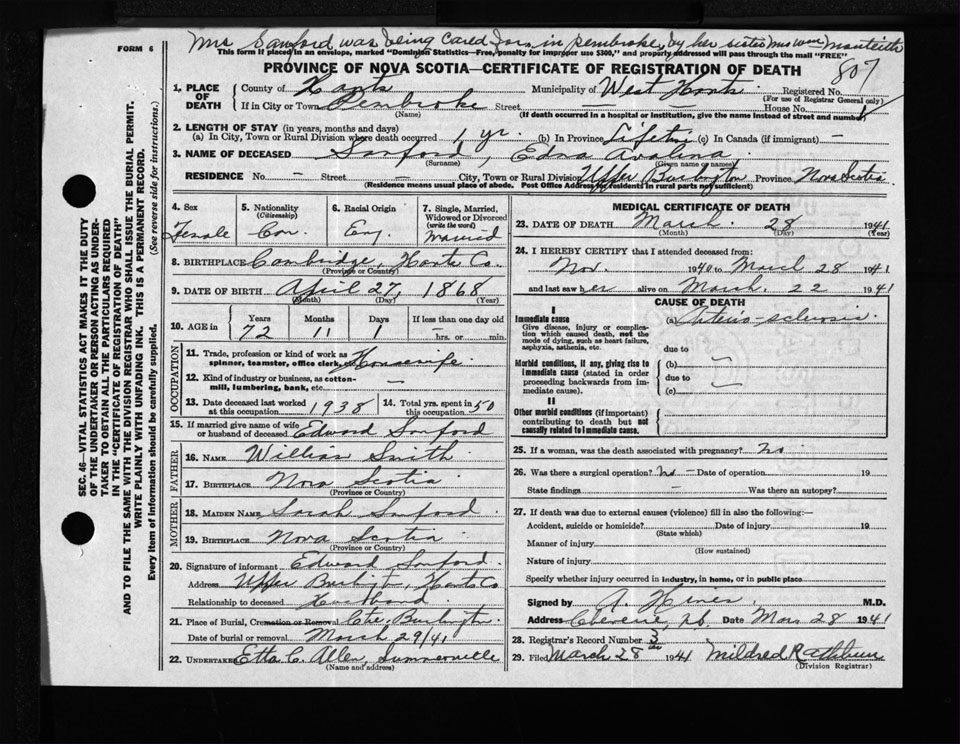 Mrs Sanford was being cared for in Pembroke by her sister Mrs Wm Monteith
FORM 6
This form if placed in an envelope, marked "Dominion Statistics—Free, penalty for improper use $300," and properly addressed will pass through the mail "FREE"
PROVINCE OF NOVA SCOTIA—CERTIFICATE OF REGISTRATION OF DEATH
807
1. PLACE OF DEATH
County of Hants Municipality of West Hants Registered No.
(For use of Registrar General only)
If in City or Town Pembroke Street — House No.
(Name) (If death occurred in a hospital or institution, give the name instead of street and number)
2. LENGTH OF STAY (in years, months and days)
(a) In City, Town or Rural Division where death occurred 1 yr. (b) In Province Lifetime (c) In Canada (if immigrant) —
3. NAME OF DECEASED Sanford, Edna Avalina
(Surname) (Given name or names)
RESIDENCE No. — Street — City, Town or Rural Division Upper Burlington Province Nova Scotia
(Residence means usual place of abode. Post Office Address for residents in rural parts not sufficient)
4. Sex
Female
5. Nationality
(Citizenship)
Can.
6. Racial Origin
Eng.
7. Single, Married, Widowed or Divorced
(write the word)
Married
8. BIRTHPLACE Cambridge, Hants Co.
(Province or Country)
9. DATE OF BIRTH April 27, 1868
(Month) (Day) (Year)
10. AGE in
Years Months Days If less than one day old
72 11 1 hrs. or min.
OCCUPATION
11. Trade, profession or kind of work as spinner, teamster, office clerk, Housewife
12. Kind of industry or business, as cotton-mill, lumbering, bank, etc. —
13. Date deceased last worked at this occupation 1938 14. Total yrs. spent in this occupation 50
15. If married give name of wife or husband of deceased Edward Sanford
FATHER
16. NAME William Smith
17. BIRTHPLACE Nova Scotia
(Province or Country)
MOTHER
18. MAIDEN NAME Sarah Sanford
19. BIRTHPLACE Nova Scotia
(Province or Country)
20. Signature of informant Edward Sanford
Address Upper Burlington, Hants Co
Relationship to deceased Husband
21. Place of Burial, Cremation or Removal Burlington
Date of burial or removal March 29/41
22. UNDERTAKER Etta C. Allen, Summerville
(Name and address)
MEDICAL CERTIFICATE OF DEATH
23. DATE OF DEATH March 28 1941
(Month) (Day) (Year)
24. I HEREBY CERTIFY that I attended deceased from:
Nov. 1940 to March 28 1941
and last saw her alive on March 22 1941
CAUSE OF DEATH
I
Immediate cause (a) Arterio-sclerosis
Give disease, injury or complication which caused death, not the mode of dying, such as heart failure, asphyxia, asthenia, etc.
due to
Morbid conditions, if any, giving rise to immediate cause (stated in order proceeding backwards from immediate cause).
(b) —
due to
(c) —
II
Other morbid conditions (if important) contributing to death but not causally related to immediate cause.
25. If a woman, was the death associated with pregnancy? No
26. Was there a surgical operation? No — Date of operation 19
State findings — Was there an autopsy?
27. If death was due to external causes (violence) fill in also the following:—
Accident, suicide or homicide? Date of injury 19
(State which)
Manner of injury
(How sustained)
Nature of injury
Specify whether injury occurred in industry, in home, or in public place
Signed by A. Hines M.D.
Address Cheverie, N.S. Date Mar 28 1941
28. Registrar's Record Number 3
29. Filed March 28 1941 Mildred Rathburn
(Division Registrar)
SEC. 46—VITAL STATISTICS ACT MAKES IT THE DUTY
OF THE UNDERTAKER OR PERSON ACTING AS UNDER-
TAKER TO OBTAIN ALL THE PARTICULARS REQUIRED
IN THE "CERTIFICATE OF REGISTRATION OF DEATH"
AND TO FILE THE SAME WITH THE DIVISION REGISTRAR WHO SHALL ISSUE THE BURIAL PERMIT.
WRITE PLAINLY WITH UNFADING INK. THIS IS A PERMANENT RECORD.
Every item of information should be carefully supplied. (See reverse side for instructions.)